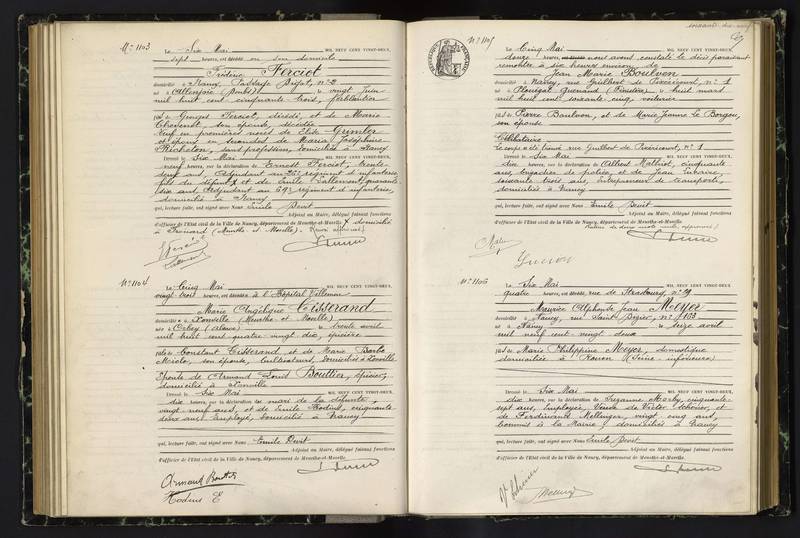 N° 1103
Le Six Mai MIL NEUF CENT VINGT-DEUX,
sept heures, est décédé en son domicile
Frédéric Ferciot
domicilié à Nancy, Passage Bifat, n° 2
né à (Doubs) le vingt Juin
mil huit cent cinquante trois, ferblantier
fils de Georges Ferciot, décédé, et de Marie
son épouse, décédée
Veuf en premières noces de Elise Grimler
et époux en secondes de Maria Joséphine
sans profession, domiciliée à Nancy
Dressé le Six Mai MIL NEUF CENT VINGT-DEUX,
neuf heures, sur la déclaration de Ernest Ferciot, trente
deux ans, Adjudant au régiment d'infanterie,
fils du défunt X et de Emile Lallement, quarante
six ans, Adjudant au 69e régiment d'infanterie,
domicilié à Nancy
qui, lecture faite, ont signé avec Nous Emile Devit
Adjoint au Maire, délégué faisant fonctions
d'officier de l'Etat civil de la Ville de Nancy, département de Meurthe-et-Moselle. X domicilié
à Frouard (Meurthe et Moselle). (Renvoi approuvé)
N° 1104
Le Cinq Mai MIL NEUF CENT VINGT-DEUX,
vingt trois heures, est décédée à l'Hôpital Villemin
Marie Angélique Tisserand
domiciliée à Xonville (Meurthe et Moselle)
née à Orbey (Alsace) le trente avril
mil huit cent quatre vingt dix, épicière
fille de Constant Tisserand et de Marie Barbe
son épouse, Cultivateurs, domiciliés à Xonville
Epouse de Armand Louis Bouttier, épicier,
domicilié à Xonville
Dressé le Six Mai MIL NEUF CENT VINGT-DEUX,
dix heures, sur la déclaration du mari de la défunte,
vingt neuf ans, et de Emile Hodius, cinquante
deux ans, Employé, domicilié à Nancy
qui, lecture faite, ont signé avec Nous Emile Devit
Adjoint au Maire, délégué faisant fonctions
d'officier de l'Etat civil de la Ville de Nancy, département de Meurthe-et-Moselle.
Armand Bouttier
Hodius E
soixante dix neuf
N° 1105
Le Cinq Mai MIL NEUF CENT VINGT-DEUX,
douze heures, nous avons constaté le décès paraissant
remonter à six heures environ de
Jean Marie Boulven
domicilié à Nancy, rue Guilbert de Pixérécourt, n° 1
né à Plouégat Guérand (Finistère) le huit mars
mil huit cent soixante cinq, voiturier
fils de Pierre Boulven, et de Marie Jeanne Le Borgne,
son épouse
Célibataire
Le corps a été trouvé rue Guilbert de Pixérécourt, n° 1
Dressé le Six Mai MIL NEUF CENT VINGT-DEUX,
dix heures, sur la déclaration de Albert cinquante
ans, brigadier de police, et de Jean
soixante trois ans, entrepreneur de transports,
domiciliés à Nancy
qui, lecture faite, ont signé avec Nous Emile Devit
Adjoint au Maire, délégué faisant fonctions
d'officier de l'Etat civil de la Ville de Nancy, département de Meurthe-et-Moselle
N° 1106
Le Six Mai MIL NEUF CENT VINGT-DEUX,
quatre heures, est décédé, rue de Strasbourg, n°
Maurice Alphonse Jean Meyer
domicilié à Nancy, rue Saint Dizier, n° 103
né à Nancy le seize avril
mil neuf cent vingt deux
fils de Marie Philippine Meyer, domestique
domiciliée à Rouen (Seine inférieure)
Dressé le Six Mai MIL NEUF CENT VINGT-DEUX,
dix heures, sur la déclaration de Suzanne cinquante
sept ans, Employée, Veuve de Victor et
de Ferdinand vingt cinq ans,
Commis à la Mairie, domiciliés à Nancy
qui, lecture faite, ont signé avec Nous Emile Devit
Adjoint au Maire, délégué faisant fonctions
d'officier de l'Etat civil de la Ville de Nancy, département de Meurthe-et-Moselle.